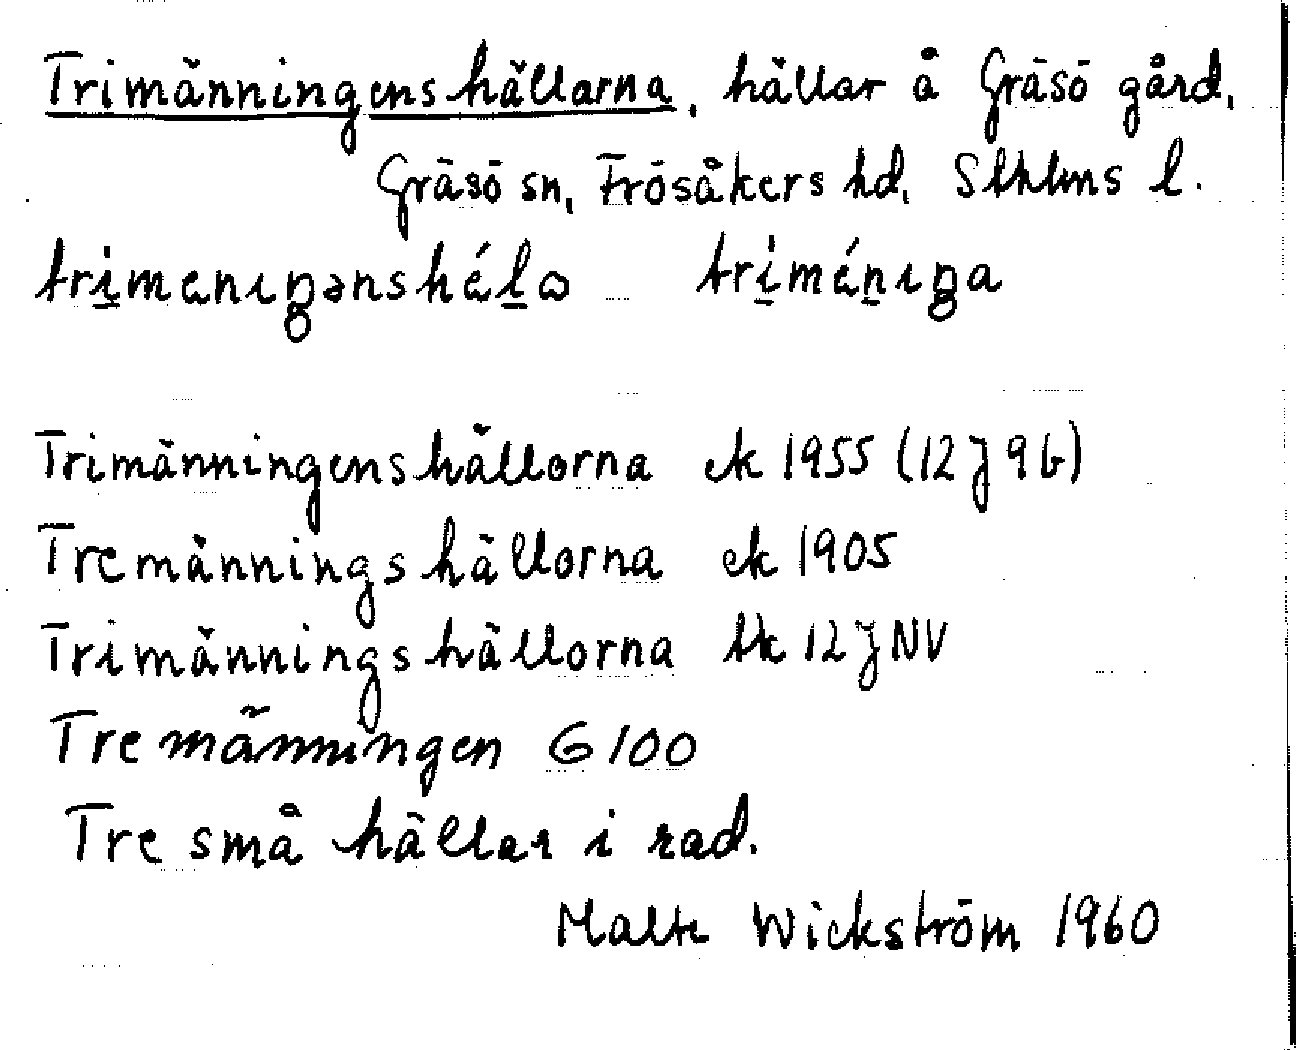 Trimänningenshällarna, hällar å Gräsö gård,
Gräsö sn, Frösåkers hd, Sthlms l.
trimenıŋənshélɷ triménıŋa
Trimänningenshällorna ek 1955 (12J 9b)
Tremänningshällorna ek 1905
Trimänningshällorna tk 12J NV
Tremänningen G 100
Tre små hällar i rad.
Malte Wickström 1960